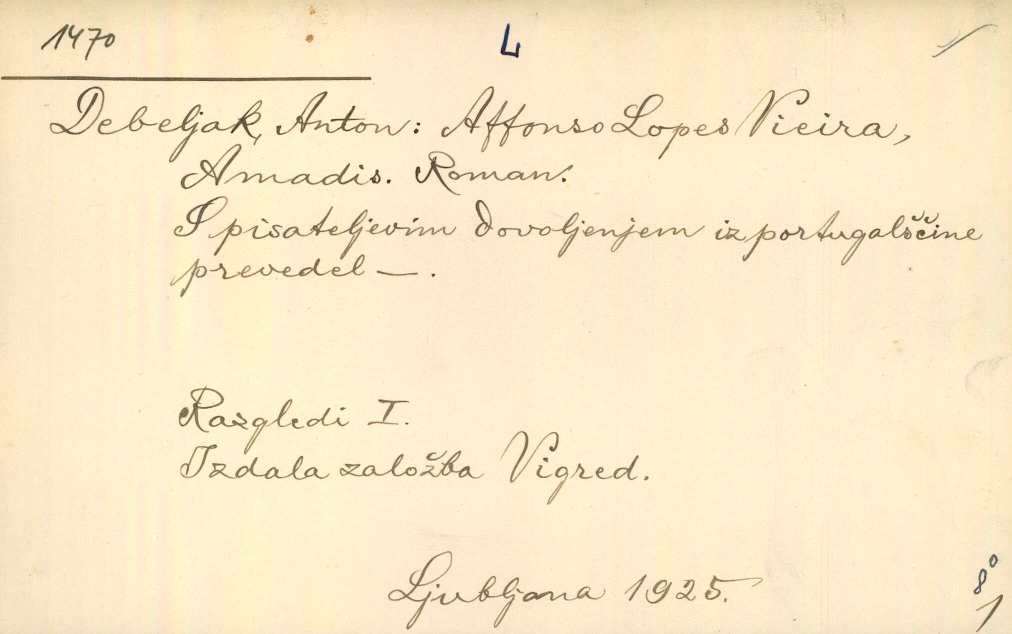 1470
L
Debeljak, Anton: Affonso Lopes Vieira,
Amadis. Roman.
S pisateljevim dovoljenjem iz portugalščine
prevedel — .
Razgledi I.
Izdala založba Vigred.
Ljubljana 1925.
8°
1